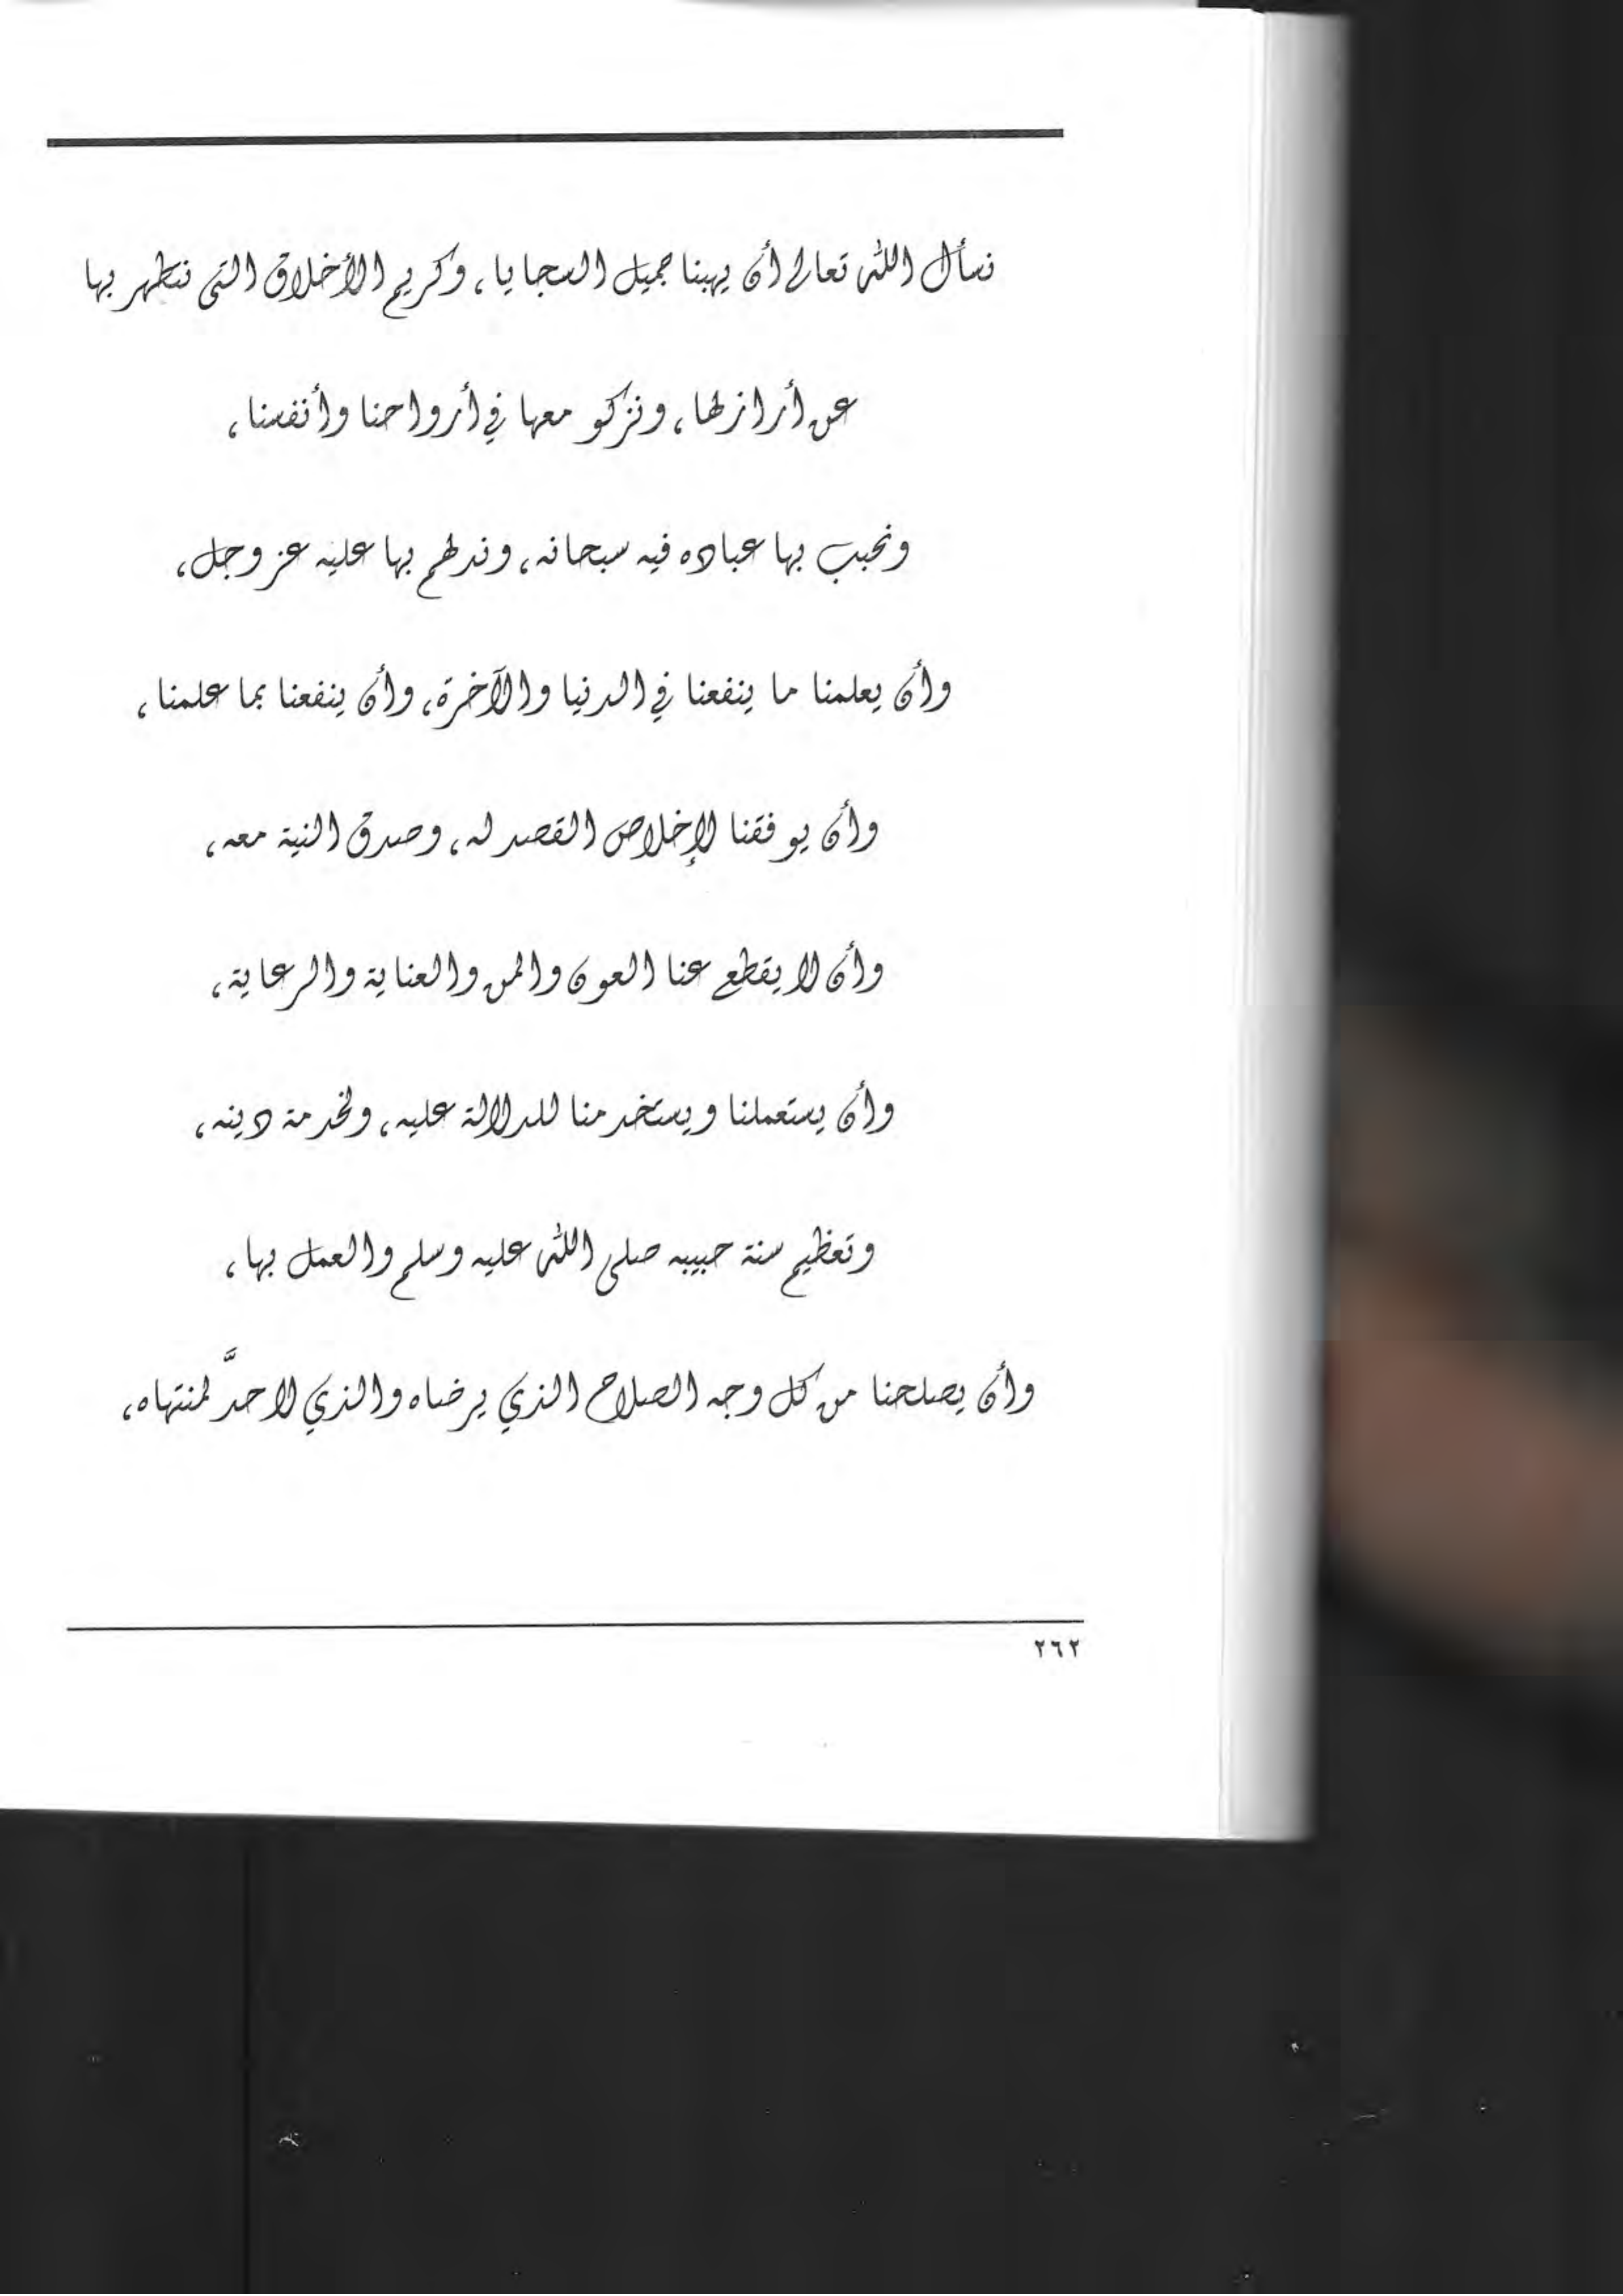 نسأل الله تعالى أن يهبنا جميل السجايا، وكريم الأخلاق التي نتطهر بها
عن أرازلها، ونزكو معها في أرواحنا وأنفسنا،
ونحبب بها عباده فيه سبحانه، وندلهم بها عليه عز وجل،
وأن يعلمنا ما ينفعنا في الدنيا والآخرة، وأن ينفعنا بما علمنا،
وأن يوفقنا لإخلاص القصد له، وصدق النية معه،
وأن لا يقطع عنا العون والمن والعناية والرعاية،
وأن يستعملنا ويستخدمنا للدلالة عليه، ولخدمة دينه،
وتعظيم سنة حبيبه صلى الله عليه وسلم والعمل بها،
وأن يصلحنا من كل وجه الصلاح الذي يرضاه والذي لا حدَّ لمنتهاه،
٢٦٢